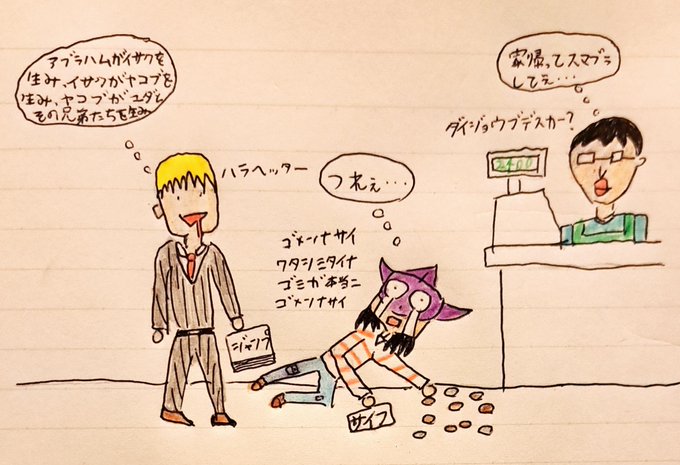 アブラハムがイサクを
生み、イサクがヤコブを
生み、ヤコブがユダと
その兄弟たちを生み
ハラヘッター
ジャンプ
つれぇ…
ゴメンナサイ
ワタシミタイナ
ゴミが本当ニ
ゴメンナサイ
サイフ
家帰ってスマブラ
してぇ…
ダイジョウブデスカー?
2400